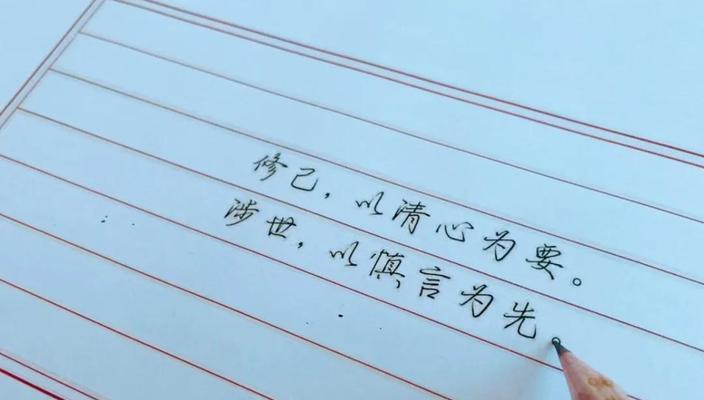 修己，以清心为要。
涉世，以慎言为先。